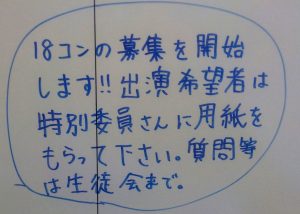 18コンの募集を開始
します!!出演希望者は
特別委員さんに用紙を
もらって下さい。質問等
は生徒会まで。